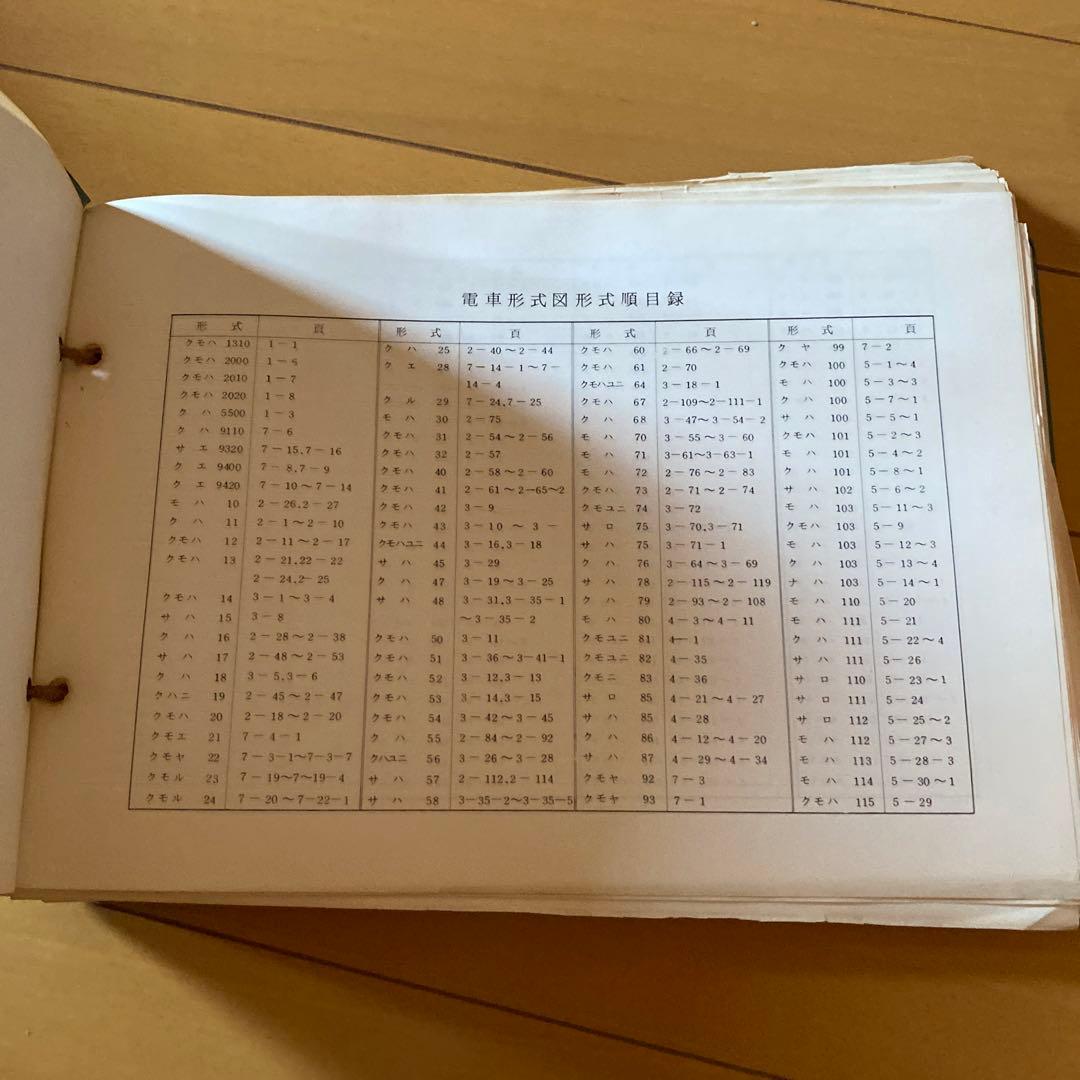 電車形式図形式順目録
形 式 頁
クモハ 1310 1-1
クモハ 2000 1-6
クモハ 2010 1-7
クモハ 2020 1-8
ク ハ 5500 1-3
ク ハ 9110 7-6
サ エ 9320 7-15,7-16
ク エ 9400 7-8,7-9
ク エ 9420 7-10〜7-14
モ ハ 10 2-26,2-27
ク ハ 11 2-1〜2-10
クモハ 12 2-11〜2-17
クモハ 13 2-21,22-22
2-24,2-25
クモハ 14 3-1〜3-4
サ ハ 15 3-8
ク ハ 16 2-28〜2-38
サ ハ 17 2-48〜2-53
ク ハ 18 3-5,3-6
クハニ 19 2-45〜2-47
クモハ 20 2-18〜2-20
クモエ 21 7-4-1
クモヤ 22 7-3-1〜7-3-7
クモル 23 7-19〜7-19-4
クモル 24 7-20〜7-22-1
形 式 頁
ク ハ 25 2-40〜2-44
ク エ 28 7-14-1〜7-
14-4
ク ル 29 7-24,7-25
モ ハ 30 2-75
クモハ 31 2-54〜2-56
クモハ 32 2-57
クモハ 40 2-58〜2-60
クモハ 41 2-61〜2-65〜2
クモハ 42 3-9
クモハ 43 3-10〜3-
クモハユニ 44 3-16,3-18
サ ハ 45 3-29
ク ハ 47 3-19〜3-25
サ ハ 48 3-31,3-35-1
〜3-35-2
クモハ 50 3-11
クモハ 51 3-36〜3-41-1
クモハ 52 3-12,3-13
クモハ 53 3-14,3-15
クモハ 54 3-42〜3-45
ク ハ 55 2-84〜2-92
クハユニ 56 3-26〜3-28
サ ハ 57 2-112,2-114
サ ハ 58 3-35-2〜3-35-5
形 式 頁
クモハ 60 2-66〜2-69
クモハ 61 2-70
クモハユニ 64 3-18-1
クモハ 67 2-109〜2-111-1
ク ハ 68 3-47〜3-54-2
モ ハ 70 3-55〜3-60
モ ハ 71 3-61〜3-63-1
モ ハ 72 2-76〜2-83
クモハ 73 2-71〜2-74
クモユニ 74 3-72
サ ロ 75 3-70,3-71
サ ハ 75 3-71-1
ク ハ 76 3-64〜3-69
サ ハ 78 2-115〜2-119
ク ハ 79 2-93〜2-108
モ ハ 80 4-3〜4-11
クモユニ 81 4-1
クモユニ 82 4-35
クモニ 83 4-36
サ ロ 85 4-21〜4-27
サ ハ 85 4-28
ク ハ 86 4-12〜4-20
サ ハ 87 4-29〜4-34
クモヤ 92 7-3
クモヤ 93 7-1
形 式 頁
ク ヤ 99 7-2
クモハ 100 5-1〜4
モ ハ 100 5-3〜3
ク ハ 100 5-7〜1
サ ハ 100 5-5〜1
クモハ 101 5-2〜3
モ ハ 101 5-4〜2
ク ハ 101 5-8〜1
サ ハ 102 5-6〜2
モ ハ 103 5-11〜3
クモハ 103 5-9
モ ハ 103 5-12〜3
ク ハ 103 5-13〜4
ナ ハ 103 5-14〜1
モ ハ 110 5-20
モ ハ 111 5-21
ク ハ 111 5-22〜4
サ ハ 111 5-26
サ ロ 110 5-23〜1
サ ロ 111 5-24
サ ロ 112 5-25〜2
モ ハ 112 5-27〜3
モ ハ 113 5-28-3
モ ハ 114 5-30〜1
クモハ 115 5-29